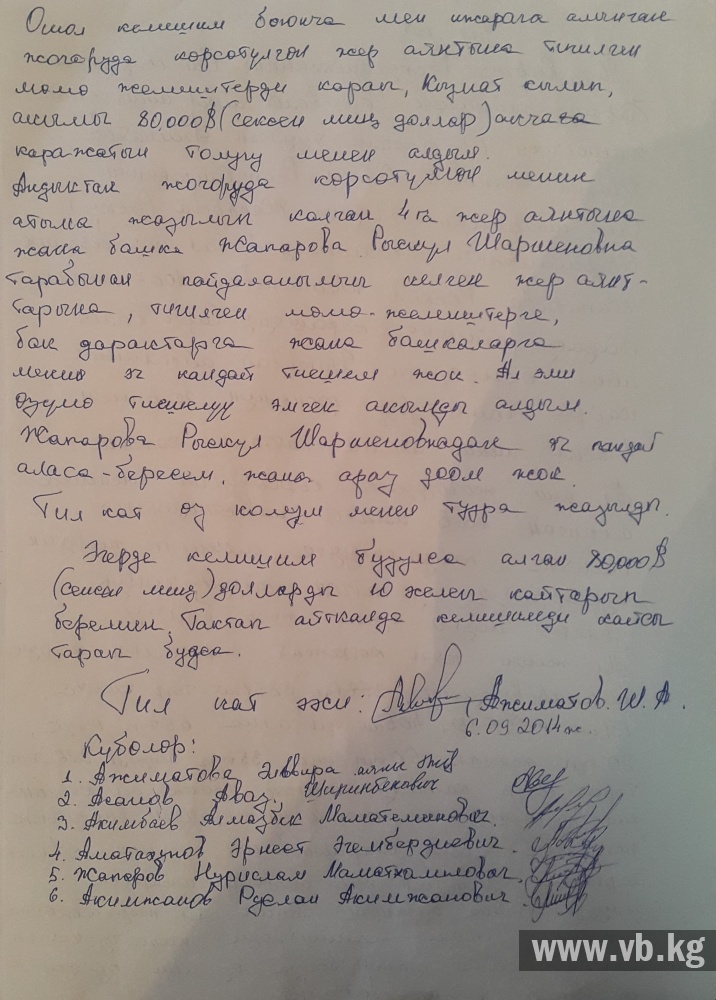 Ошол келишим боюнча мен ижарага алынган
жогоруда корсотулгон жер аянтына тигилген
момо жемиштерди карап, Кызмат кылып,
акымы 80,000$ (сексен миң доллар) акчага
каражатын толугу менен алдым.
Андыктан жогоруда корсотулгон менин
атыма жазылып калган 4 га жер аянтына
жана башка Жапарова Рыскул Шаршеновна
тарабынан пайдаланылып келген жер аянт-
тарына, тигилген момо-жемиштерге,
бак дарактарга жана башкаларга
менин эч кандай тиешем жок. Ал эми
озумо тиешелуу эмгек акымды алдым.
Жапарова Рыскул Шаршеновнадан эч кандай
аласа-бересем, жана арыз доом жок.
Тил кат оз колум менен туура жазылды.
Эгерде келишим бузулса алган 80,000$
(сексен миң) долларды 10 желеп кайтарып
беремин, Тактап айтканда келишимди кайсы
тарап бузса.
Тил кат ээси: Ажиматов. Ш. А.
6.09.2014ж.
Куболор:
1. Ажиматова Элвира
2. Асанов Аваз Ширинбекович
3. Акимбаев Алмазбек Маматеминович.
4. Аматахунов Эрнест Эгембердиевич.
5. Жапаров Нурислам Маматкалилович.
6. Акимжанов Руслан Акимжанович.
www.vb.kg